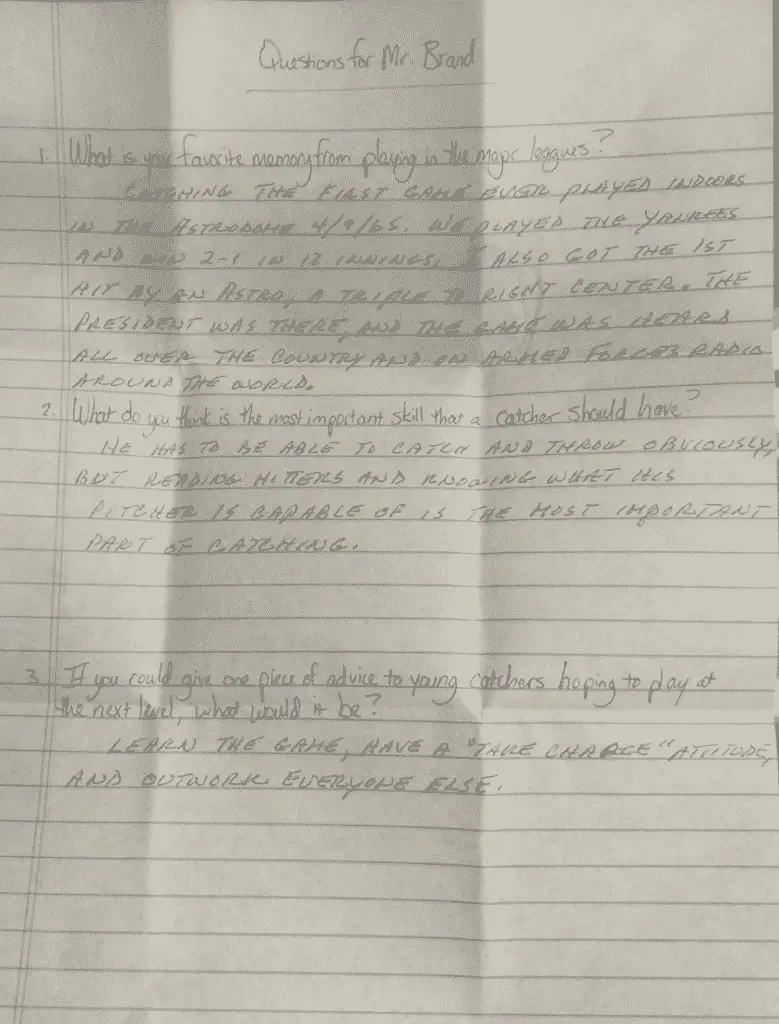 Questions for Mr. Brand
1. What is your favorite memory from playing in the major leagues?
CATCHING THE FIRST GAME EVER PLAYED INDOORS
IN THE ASTRODOME 4/9/65. WE PLAYED THE YANKEES
AND WON 2-1 IN 12 INNINGS. I ALSO GOT THE 1ST
HIT BY AN ASTRO, A TRIPLE TO RIGHT CENTER. THE
PRESIDENT WAS THERE, AND THE GAME WAS HEARD
ALL OVER THE COUNTRY AND ON ARMED FORCES RADIO
AROUND THE WORLD.
2. What do you think is the most important skill that a catcher should have?
HE HAS TO BE ABLE TO CATCH AND THROW OBVIOUSLY,
BUT READING HITTERS AND KNOWING WHAT HIS
PITCHER IS CAPABLE OF IS THE MOST IMPORTANT
PART OF CATCHING.
3. If you could give one piece of advice to young catchers hoping to play at
the next level, what would it be?
LEARN THE GAME, HAVE A "TAKE CHARGE" ATTITUDE,
AND OUTWORK EVERYONE ELSE.